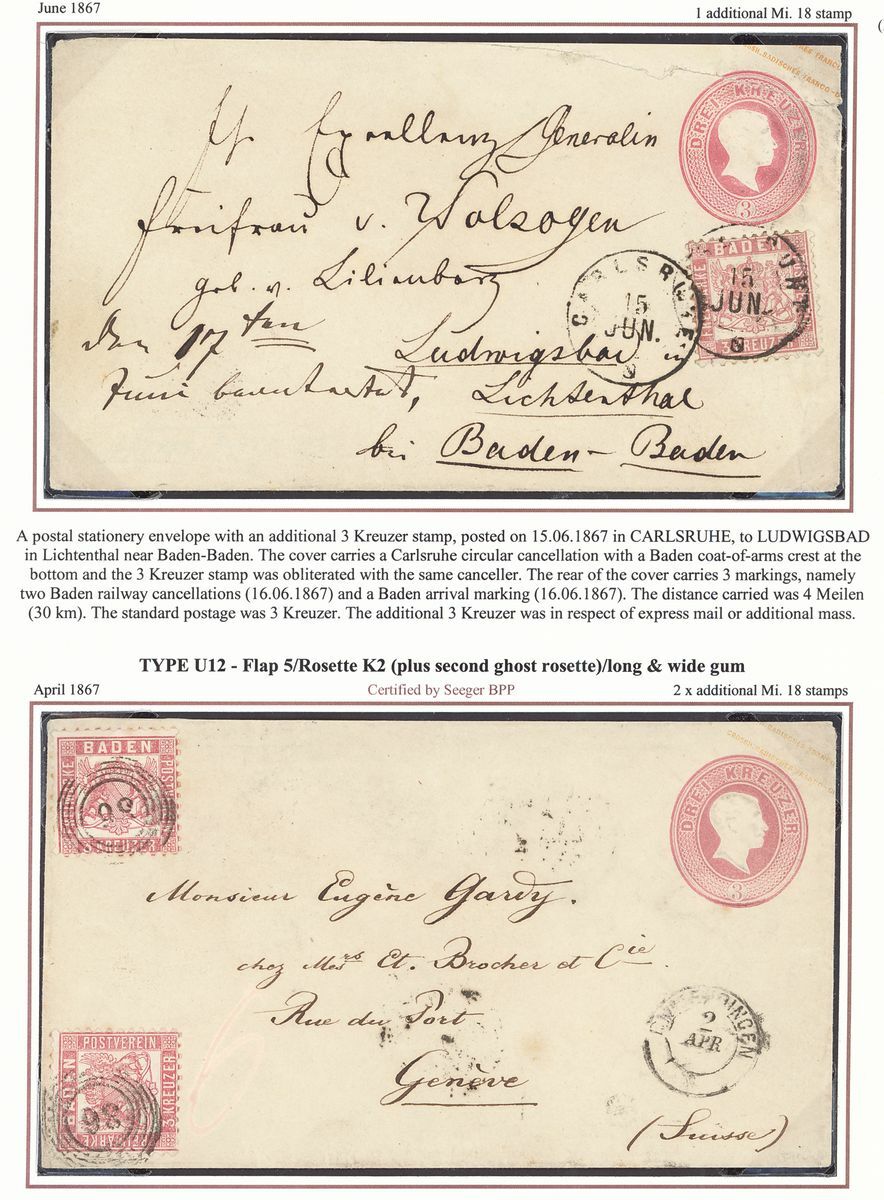 June 1867
1 additional Mi. 18 stamp
DREI KREUZER
3
Excellenz Generalin
Freifrau v. Wolzogen
geb. v.
den 17ten
Ludwigsbad in
Juni beantwortet,
Lichtenthal
bei Baden-Baden
BADEN
3 KREUZER
CARLSRUHE
15
JUN.
15
JUN.
A postal stationery envelope with an additional 3 Kreuzer stamp, posted on 15.06.1867 in CARLSRUHE, to LUDWIGSBAD
in Lichtenthal near Baden-Baden. The cover carries a Carlsruhe circular cancellation with a Baden coat-of-arms crest at the
bottom and the 3 Kreuzer stamp was obliterated with the same canceller. The rear of the cover carries 3 markings, namely
two Baden railway cancellations (16.06.1867) and a Baden arrival marking (16.06.1867). The distance carried was 4 Meilen
(30 km). The standard postage was 3 Kreuzer. The additional 3 Kreuzer was in respect of express mail or additional mass.
TYPE U12 - Flap 5/Rosette K2 (plus second ghost rosette)/long & wide gum
April 1867
Certified by Seeger BPP
2 x additional Mi. 18 stamps
BADEN
3 KREUZER
DREI KREUZER
3
Monsieur Eugène Gardy.
chez Mers Et. Brocher et Cie.
Rue du Port
Genève
(Suisse)
2
APR
POSTVEREIN
BADEN
3 KREUZER
FREIMARKE